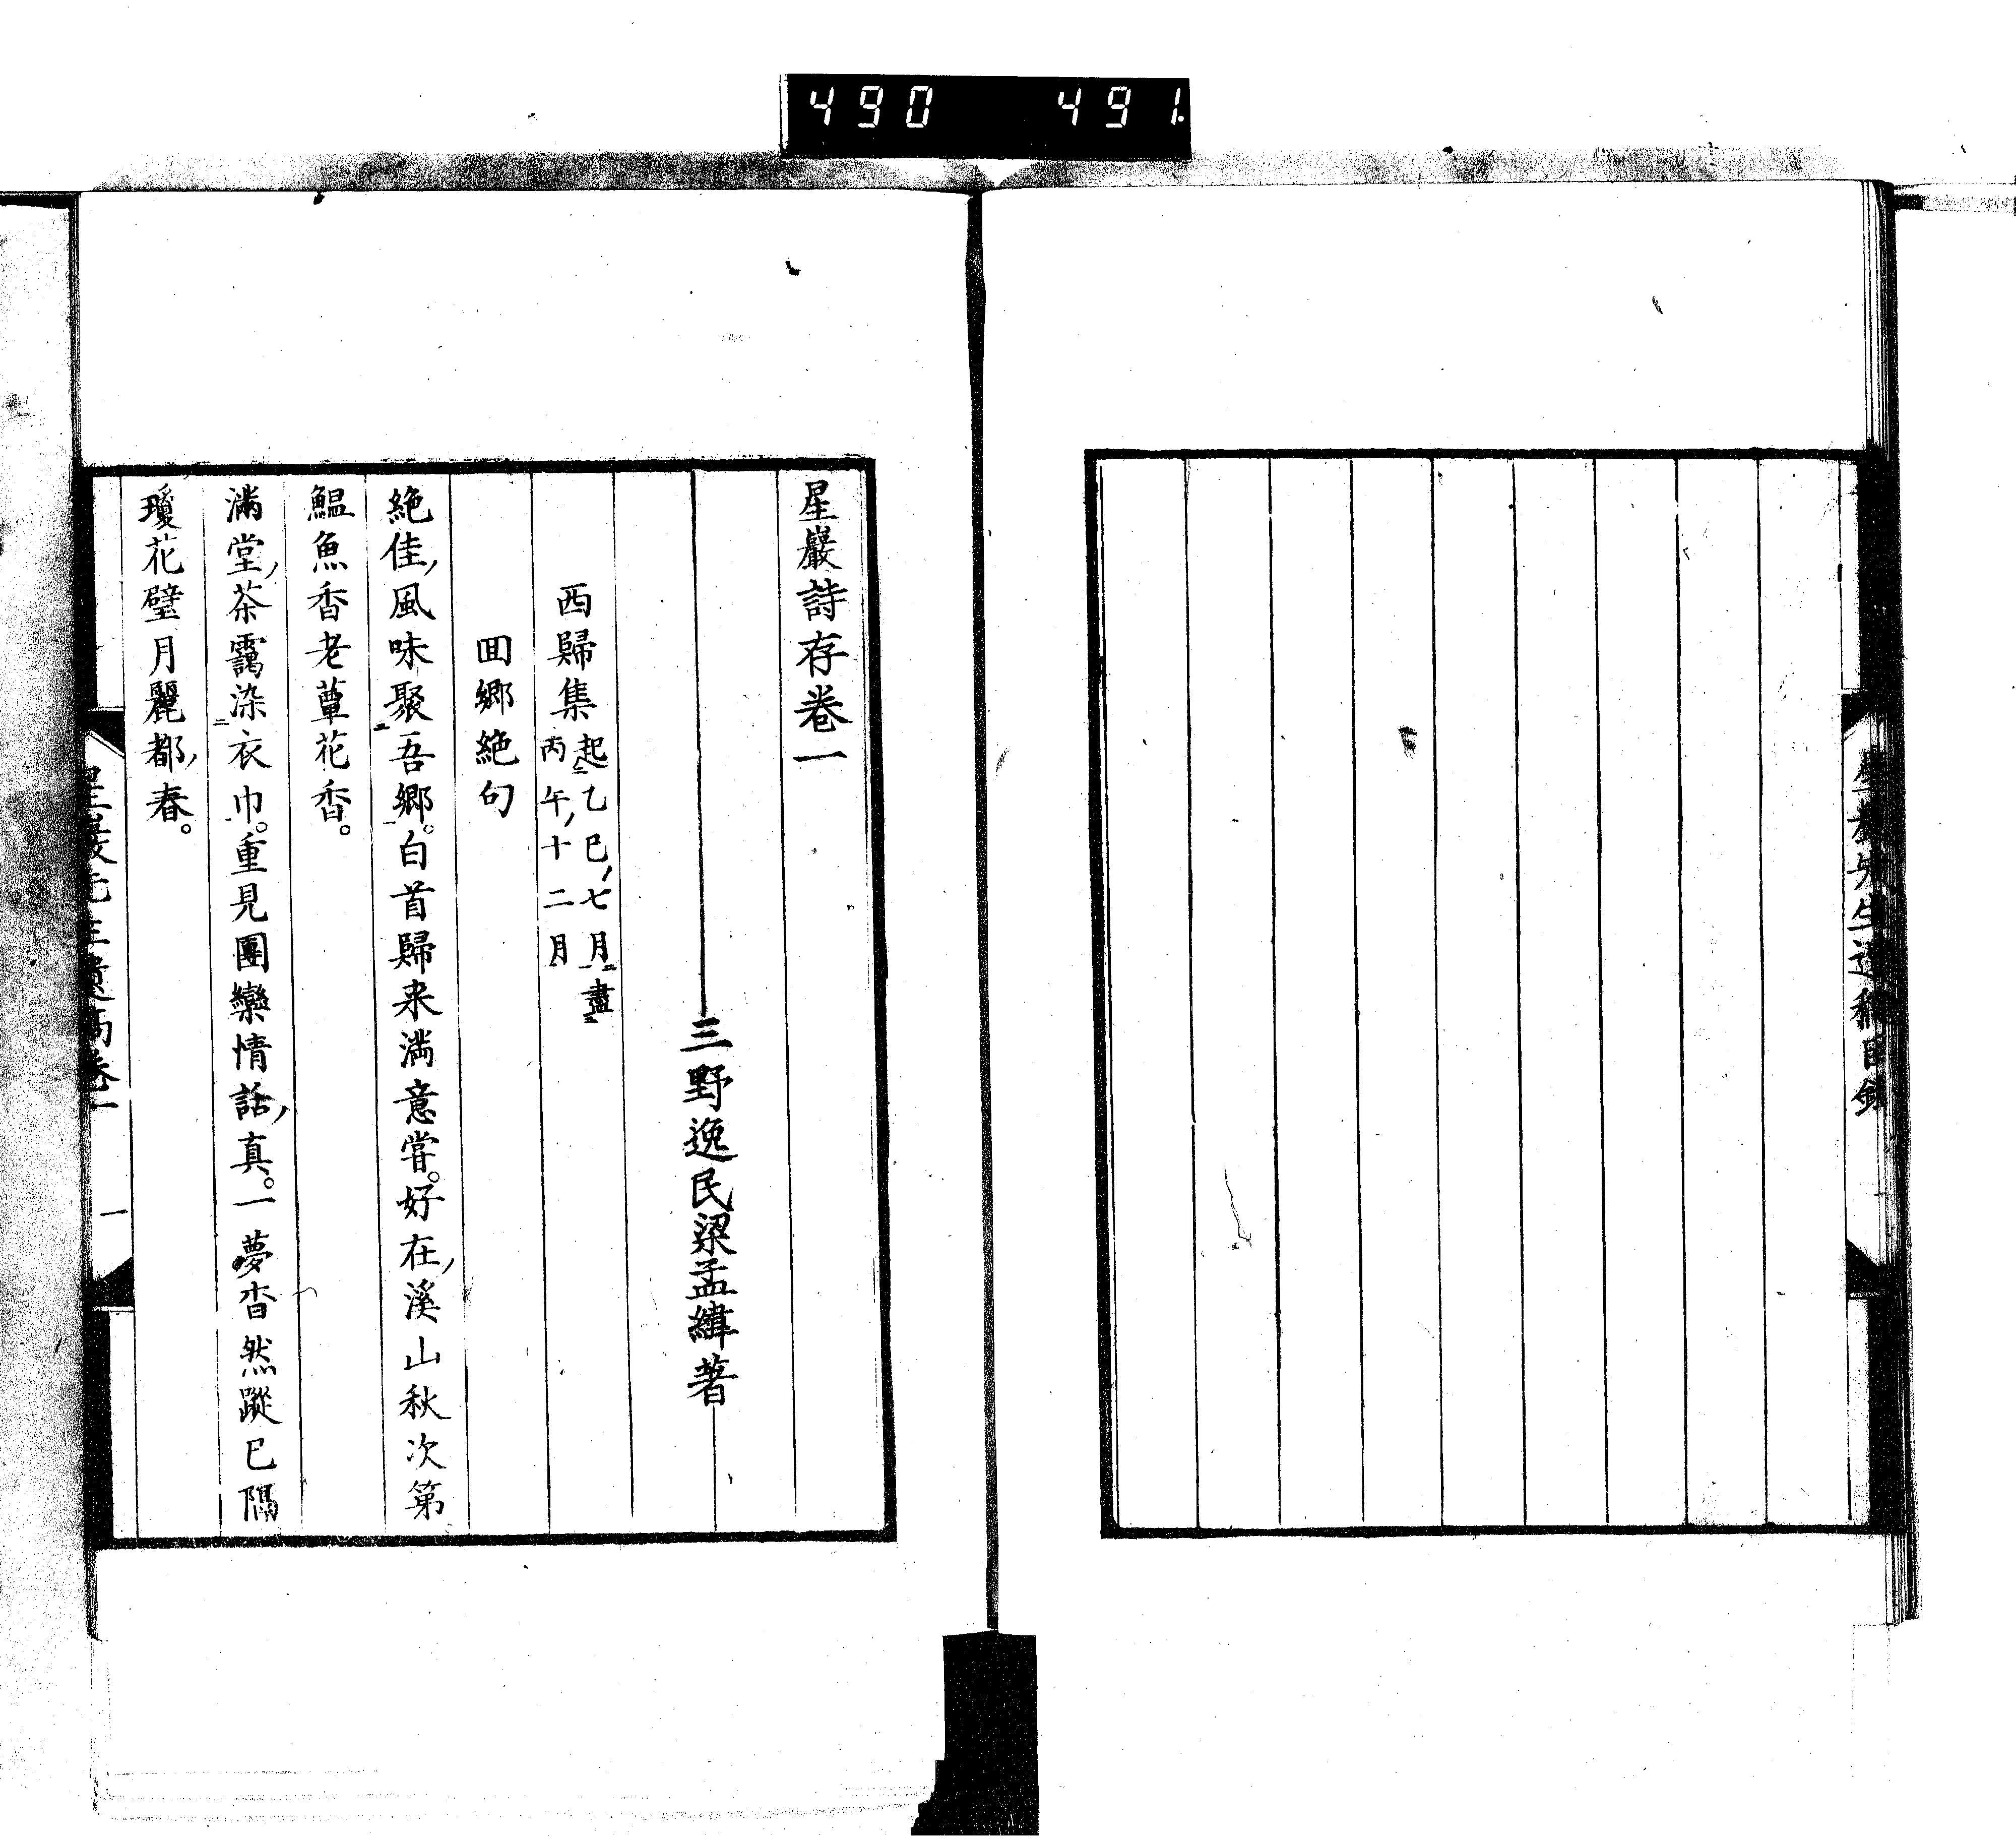 490 491
星巖先生遺稿目錄
星巖詩存卷一
三野逸民梁孟緯著
西歸集 起乙巳七月盡
丙午十二月
回鄉絶句
絶佳風味聚吾鄉。白首歸来満意甞。好在溪山秋次第
鰛魚香老蕈花香。
滿堂茶靄染衣巾。重見團欒情話真。一夢杳然蹤已隔
瓊花璧月麗都春。
星巖先生遺稿卷一
一